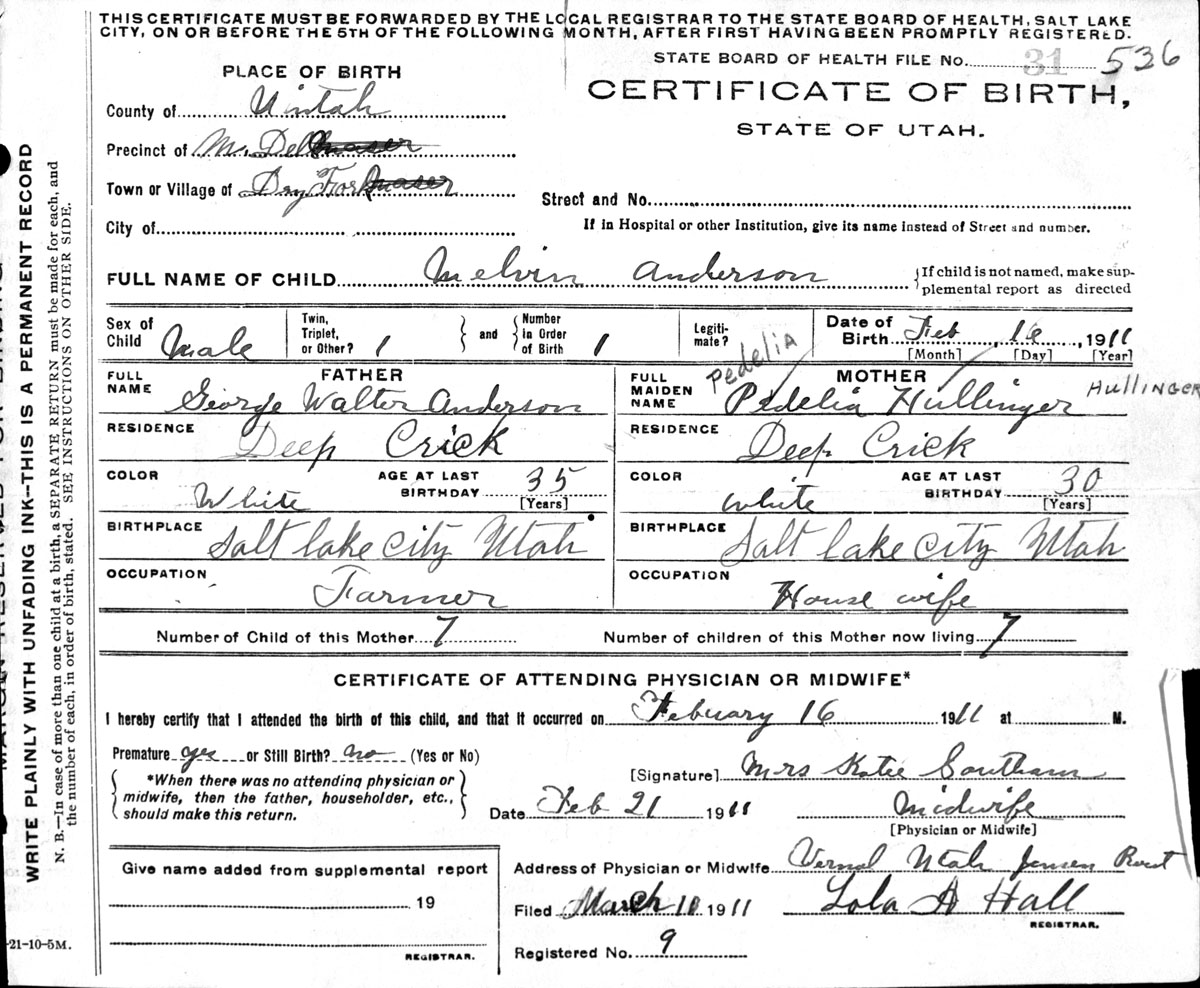 THIS CERTIFICATE MUST BE FORWARDED BY THE LOCAL REGISTRAR TO THE STATE BOARD OF HEALTH, SALT LAKE
CITY, ON OR BEFORE THE 5TH OF THE FOLLOWING MONTH, AFTER FIRST HAVING BEEN PROMPTLY REGISTERED.
STATE BOARD OF HEALTH FILE No. 31 536
PLACE OF BIRTH
CERTIFICATE OF BIRTH,
STATE OF UTAH.
County of Uintah
Precinct of
Town or Village of Dry Fork
Street and No.
City of
If in Hospital or other Institution, give its name instead of Street and number.
FULL NAME OF CHILD Melvin Anderson
If child is not named, make sup-
plemental report as directed
Sex of Child Male
Twin, Triplet, or Other? 1
and
Number in Order of Birth 1
Legiti-mate?
Date of Birth Feb 16, 1911
[Month] [Day] [Year]
FATHER
FULL NAME George Walter Anderson
RESIDENCE Deep Crick
COLOR White
AGE AT LAST BIRTHDAY 35
[Years]
BIRTHPLACE Salt lake city Utah
OCCUPATION Farmer
Pedelia
MOTHER
FULL MAIDEN NAME Pedelia Hullinger HULLINGER
RESIDENCE Deep Crick
COLOR white
AGE AT LAST BIRTHDAY 30
[Years]
BIRTHPLACE Salt lake city Utah
OCCUPATION House wife
Number of Child of this Mother 7 Number of children of this Mother now living 7
CERTIFICATE OF ATTENDING PHYSICIAN OR MIDWIFE*
I hereby certify that I attended the birth of this child, and that it occurred on Febuary 16 1911 at M.
Premature yes or Still Birth? no (Yes or No)
*When there was no attending physician or
midwife, then the father, householder, etc.,
should make this return.
[Signature] Mrs Katie Southam
Date Feb 21 1911 Midwife
[Physician or Midwife]
Address of Physician or Midwife Vernal Utah Jensen
Give name added from supplemental report
19
REGISTRAR.
Filed March 10 1911 Lola A Hall
REGISTRAR.
Registered No. 9
WRITE PLAINLY WITH UNFADING INK--THIS IS A PERMANENT RECORD
N. B.—In case of more than one child at a birth, a SEPARATE RETURN must be made for each, and
the number of each, in order of birth, stated. SEE INSTRUCTIONS ON OTHER SIDE.
-21-10-5M.